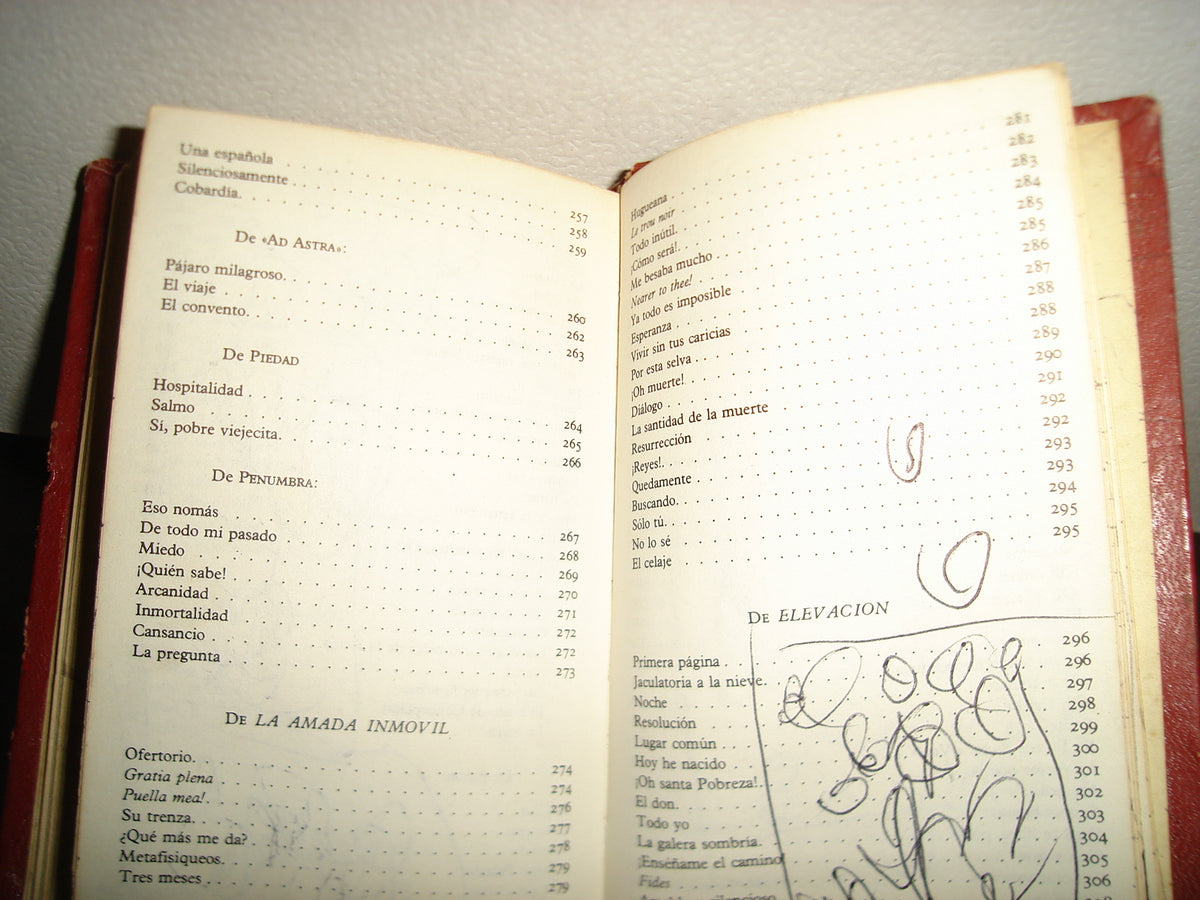 Una española . . . 257
Silenciosamente . . . 258
Cobardía. . . . 259
De «AD ASTRA»:
Pájaro milagroso. . . . 260
El viaje . . . 262
El convento. . . . 263
De PIEDAD
Hospitalidad . . . 264
Salmo . . . 265
Sí, pobre viejecita. . . . 266
De PENUMBRA:
Eso nomás . . . 267
De todo mi pasado . . . 268
Miedo . . . 269
¡Quién sabe! . . . 270
Arcanidad . . . 271
Inmortalidad . . . 272
Cansancio . . . 272
La pregunta . . . 273
DE LA AMADA INMOVIL
Ofertorio. . . . 274
Gratia plena . . . 274
Puella mea!. . . . 276
Su trenza. . . . 277
¿Qué más me da? . . . 278
Metafisiqueos. . . . 279
Tres meses . . . 279
Hugueana . . . 281
Le trou noir . . . 282
Todo inútil. . . . 283
¡Cómo será!. . . . 284
Me besaba mucho . . . 285
Nearer to thee! . . . 285
Ya todo es imposible . . . 286
Esperanza . . . 287
Vivir sin tus caricias . . . 288
Por esta selva . . . 288
¡Oh muerte!. . . . 289
Diálogo . . . 290
La santidad de la muerte . . . 291
Resurrección . . . 292
¡Reyes!. . . . 292
Quedamente . . . 293
Buscando. . . . 293
Sólo tú. . . . 294
No lo sé . . . 295
El celaje . . . 295
DE ELEVACION
Primera página . . . 296
Jaculatoria a la nieve. . . . 296
Noche . . . 297
Resolución . . . 298
Lugar común . . . 299
Hoy he nacido . . . 300
¡Oh santa Pobreza!. . . . 301
El don. . . . 302
Todo yo . . . 303
La galera sombría. . . . 304
¡Enséñame el camino . . . 305
Fides . . . 306